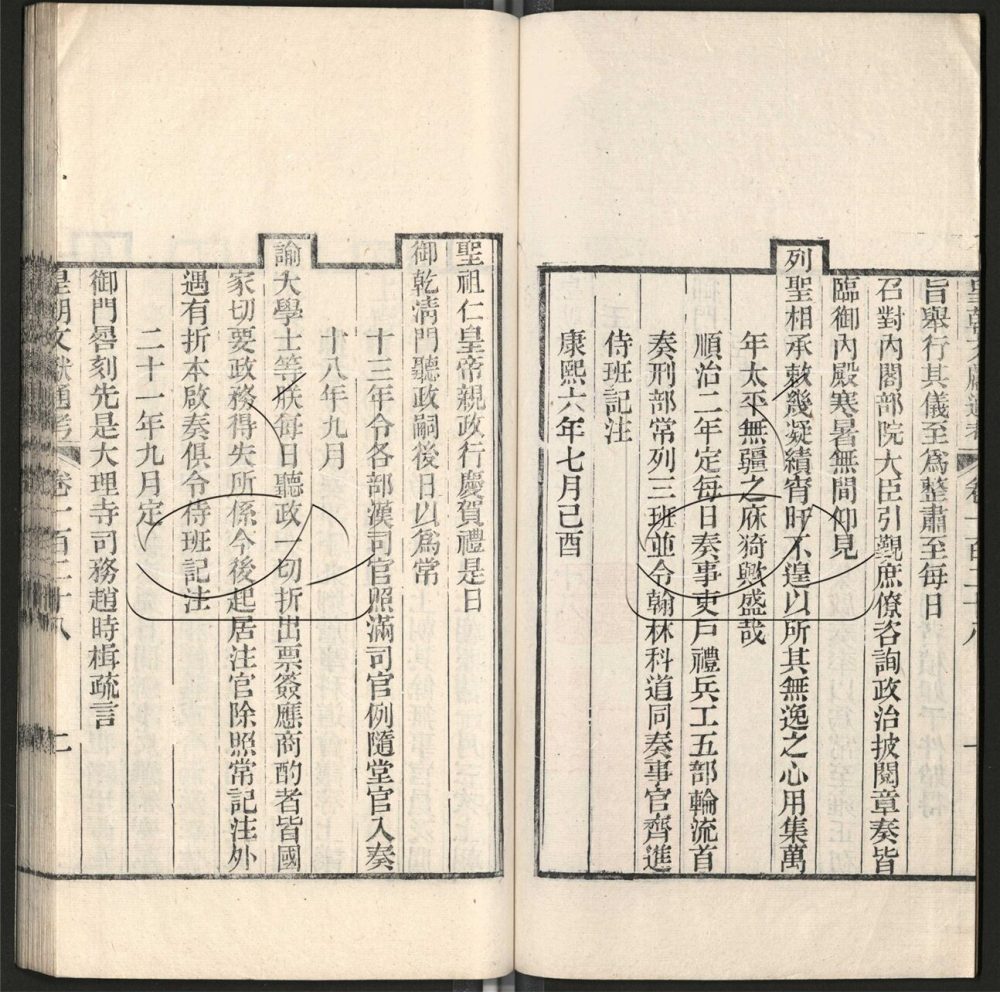 皇朝文獻通考 卷一百二十八 一
旨舉行其儀至爲整肅至每日
召對內閣部院大臣引覲庶僚咨詢政治披閱章奏皆
臨御內殿寒暑無間仰見
列聖相承敕幾凝績宵旰不遑以所其無逸之心用集萬
年太平無疆之庥猗歟盛哉
順治二年定每日奏事吏戶禮兵工五部輪流首
奏刑部常列三班並令翰林科道同奏事官齊進
侍班記注
康熙六年七月己酉
聖祖仁皇帝親政行慶賀禮是日
御乾淸門聽政嗣後日以爲常
十三年令各部漢司官照滿司官例隨堂官入奏
十八年九月
諭大學士等朕每日聽政一切折出票簽應商酌者皆國
家切要政務得失所係今後起居注官除照常記注外
遇有折本啟奏俱令侍班記注
二十一年九月定
御門晷刻先是大理寺司務趙時楫疏言
皇朝文獻通考 卷一百二十八 二